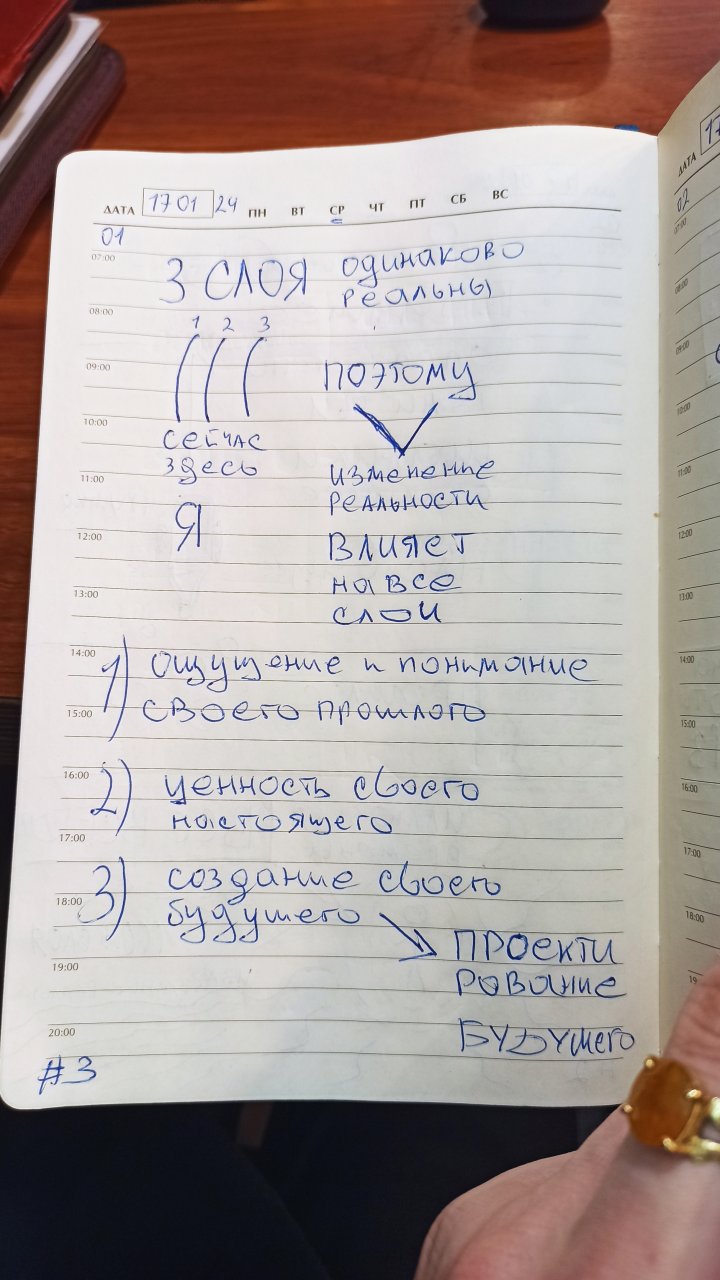 ДАТА 17 01 24 ПН ВТ СР ЧТ ПТ СБ ВС
01
07:00
3 СЛОЯ одинаково
реальны
08:00
1 2 3
09:00
ПОЭТОМУ
10:00
СЕЙЧАС
здесь
изменение
11:00
РЕАЛЬНОСТИ
Я
12:00
ВЛИЯЕТ
на все
13:00
слои
14:00
1) ощущение и понимание
15:00
своего прошлого
16:00
2) ценность своего
настоящего
17:00
3) создание своего
18:00
будушего
ПРОЕКТИ
19:00
рование
20:00
Будушего
#3
ДАТА 17
02
07:00
08:00
09:00
10:00
11:00
12:00
13:00
14:00
15:00
16:00
17:00
18:00
19